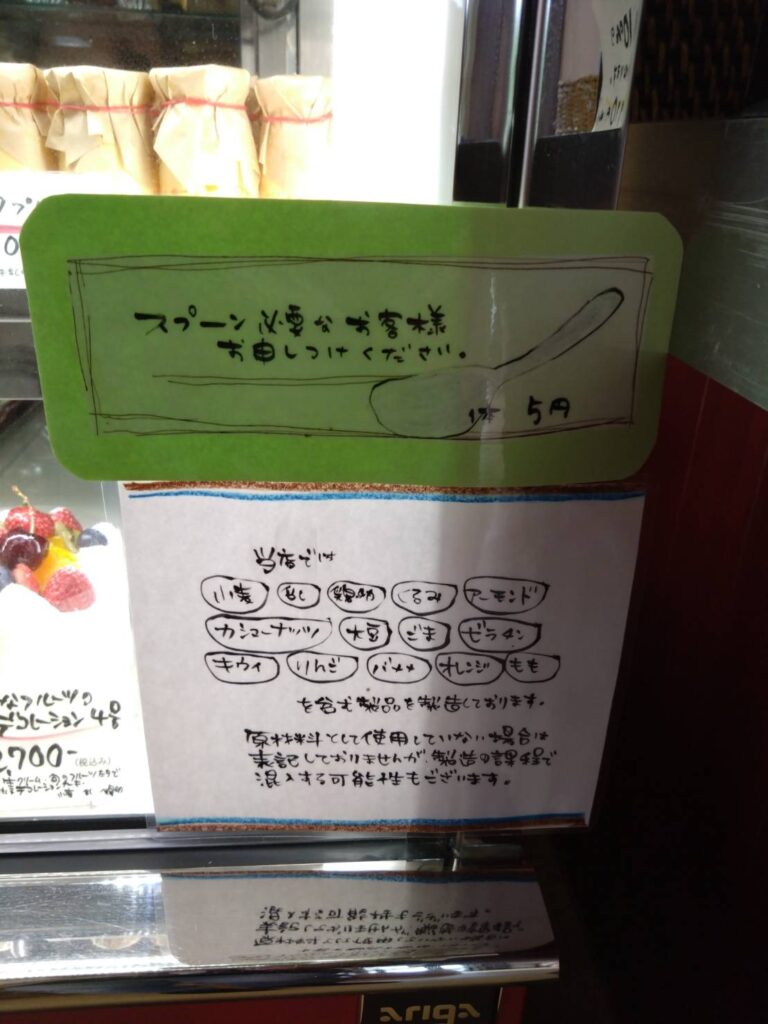 スプーン必要なお客様
お申しつけください。
1本 5円
当店では
小麦 乳 鶏卵 くるみ アーモンド
カシューナッツ 大豆 ごま ゼラチン
キウイ りんご バナナ オレンジ もも
を含む製品を製造しております。
原材料として使用していない場合は
表記しておりませんが、製造の課程で
混入する可能性もございます。
なフルーツの
デコレーション 4号
700-
(税込み)